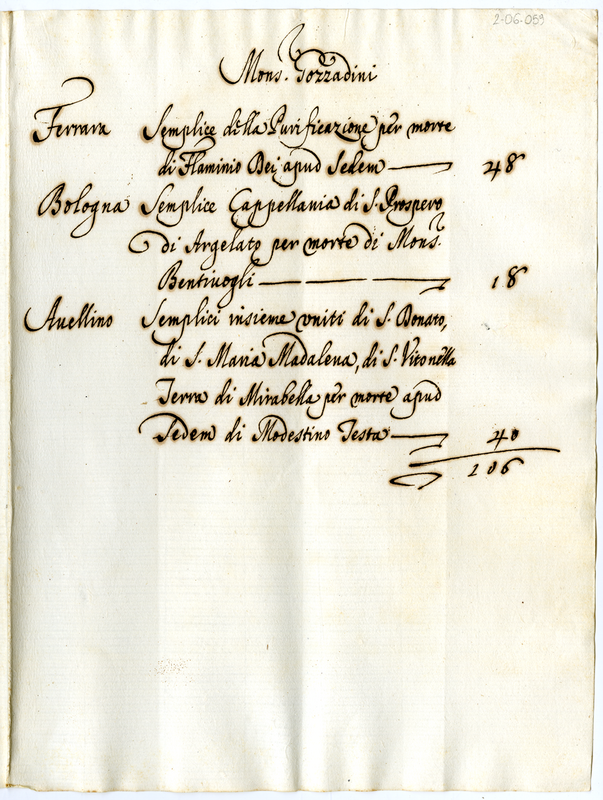 2-06-059
Mons.r Gozzadini
Ferrara Semplice della Purificazione per morte
di Flaminio Bei apud Sedem 48
Bologna Semplice Cappellania di S. Prospero
di Argelato per morte di Mons.r
Bentivogli 18
Avellino Semplici insieme vniti di S. Donato,
di S. Maria Madalena, di S. Vito nella
Terra di Mirabella per morte apud
Sedem di Modestino Testa 40
106